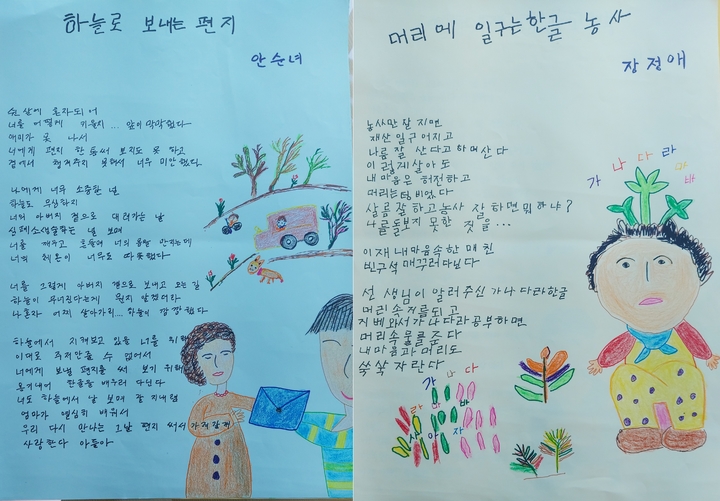 하늘로 보내는 편지
안순녀
쉰 살에 혼자되어
너를 어떻게 키울지... 앞이 막막했다
애미가 못 나서
너에게 편지 한 통 써 보지도 못 하고
곁에서 챙겨주지 못해서 너무 미안했다
나에게 너무 소중한 널
하늘도 무심하지
너의 아버지 곁으로 데려가는 날
심폐소생술하는 널 보며
너를 깨우고 흔들며 너의 몸을 만지는데
너의 체온이 너무도 따뜻했다
너를 그렇게 아버지 곁으로 보내고 오는 길
하늘이 무너진다는게 뭔지 알겠더라
나혼자 어찌 살아가리... 하늘이 깜깜했다
하늘에서 지켜보고 있을 너를 위해
이대로 주저앉을 수 없어서
너에게 보낼 편지를 써 보기 위해
용기내어 한글을 배우러 다닌다
너도 하늘에서 날 보며 잘 지내렴
엄마가 열심히 배워서
우리 다시 만나는 그날 편지 써서 가져갈게
사랑한다 아들아
머리에 일구는 한글 농사
장정애
농사만 잘 지면
재산 일구어지고
나름 잘 산다고 하며 산다
이렇게 살아도
내 마음은 허전하고
머리는 텅 비었다
살림 잘 하고 농사 잘 하면 뭐 하나?
나를 돌보지 못한 것을...
이제 내 마음속 한 매친
빈구석 매꾸러 다닌다
선생님이 알려주신 가나다라 한글
머리속 저름되고
지베 와서 가나다라 공부하면
머리속 물를 준다
내 마음과 머리도
쑥쑥 자란다
가 나 다 라 마 바
가 나 다
라 마 바
사 아 자